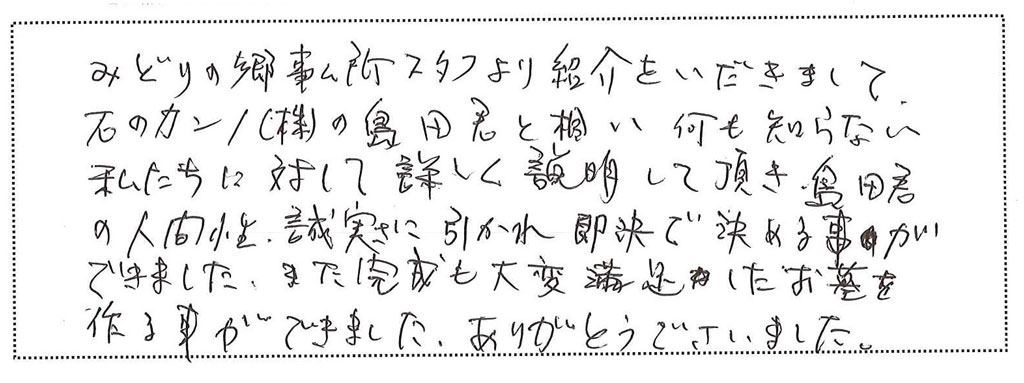 みどりの郷事ム所スタフより紹介をいだきまして、
石のカンノ(株)の島田君と相い 何も知らない
私たちに対して詳しく説明して頂き、島田君
の人間性、誠実さに引かれ 即決で決める事が
できました、また完成も大変満足したお墓を
作る事ができました、ありがとうございました。